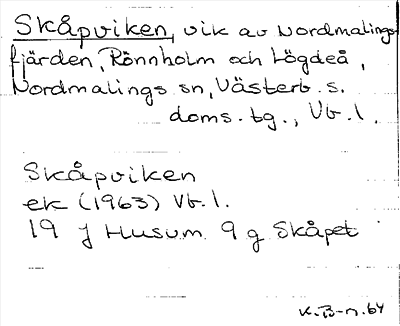 Skåpviken, vik av Nordmalings-
fjärden, Rönnholm och Lögdeå,
Nordmalings sn, Västerb. s.
doms. tg., Vb. l.
Skåpviken
ek (1963) Vb. l.
19 J Husum 9 g Skåpet
K. B-n. 64